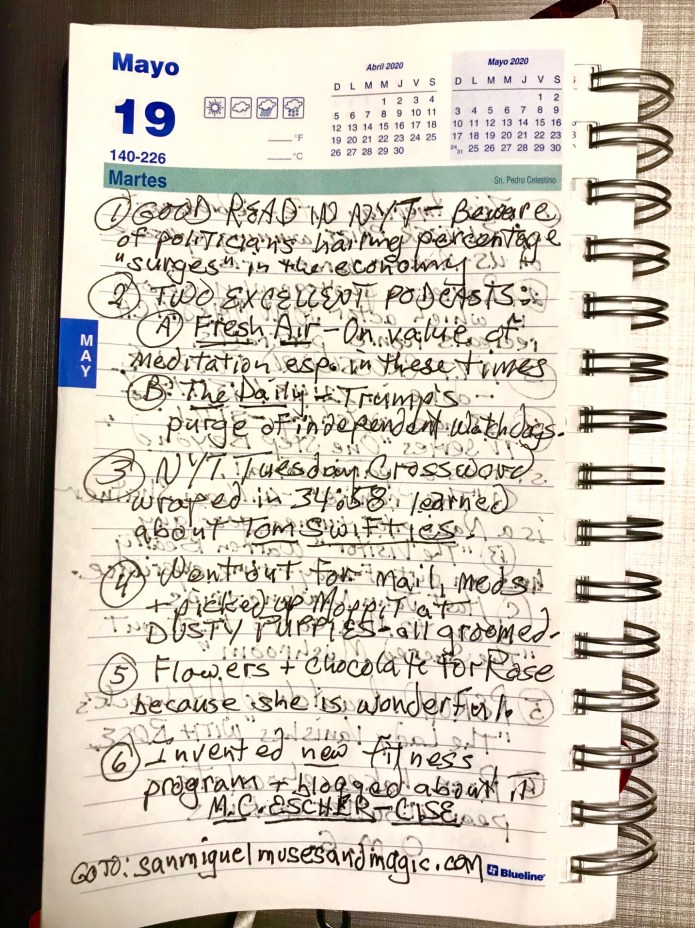 Mayo
19
140-226
°F
°C
Abril 2020
D L M M J V S
1 2 3 4
5 6 7 8 9 10 11
12 13 14 15 16 17 18
19 20 21 22 23 24 25
26 27 28 29 30
Mayo 2020
D L M M J V S
1 2
3 4 5 6 7 8 9
10 11 12 13 14 15 16
17 18 19 20 21 22 23
24/31 25 26 27 28 29 30
Martes
Sn. Pedro Celestino
MAY
1 GOOD READ IN NYT - Beware
of politicians hailing percentage
"surges" in the economy
2 TWO EXCELLENT PODCASTS:
A Fresh Air - On value of
meditation esp. in these times
B. The Daily - Trump's
purge of independent watchdogs.
3 NYT Tuesday Crossword
wraped in 34:58. learned
about Tom Swifties.
4 Went out for mail, meds
+ picked up Moppit at
DUSTY PUPPIES - all groomed.
5 Flowers + chocolate for Rose
because she is wonderful.
6 Invented new fitness
program + blogged about it
M.C. ESCHER-CISE
GO TO: sanmiguelmusesandmagic.com
Blueline®